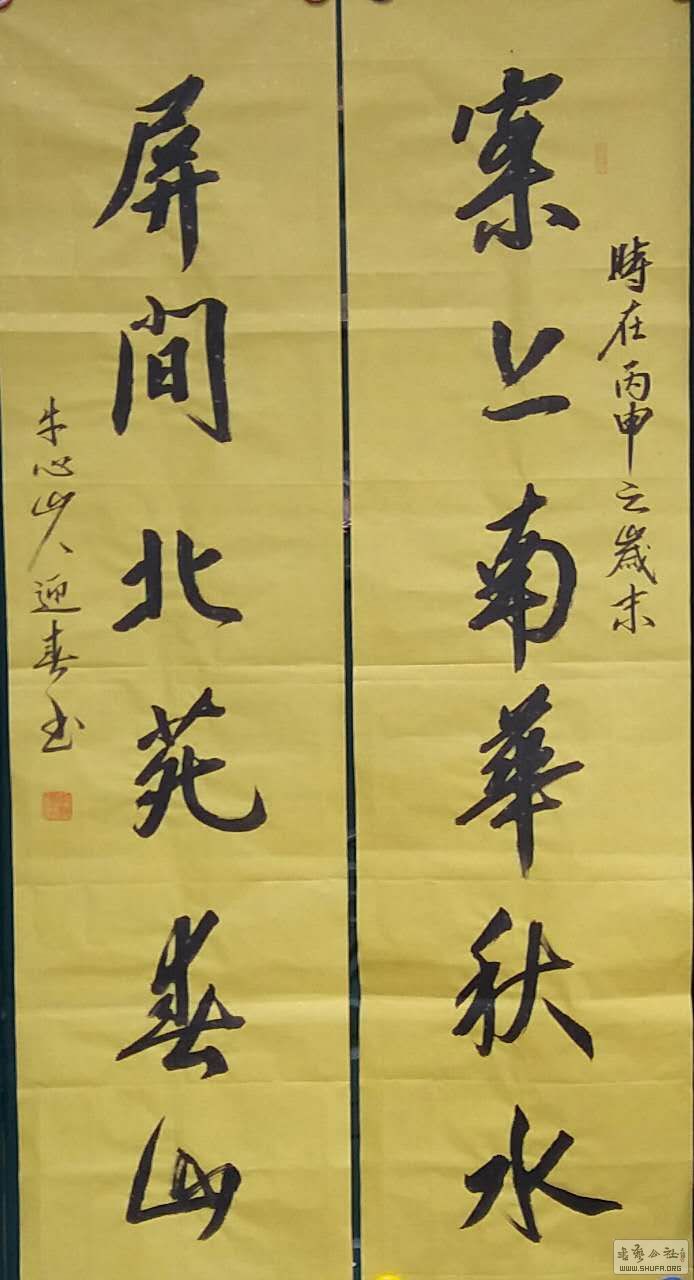 時在丙申之歲末
案上南華秋水
屏間北苑春山
牛心山人迎春书
书艺公社
WWW.SHUFA.ORG